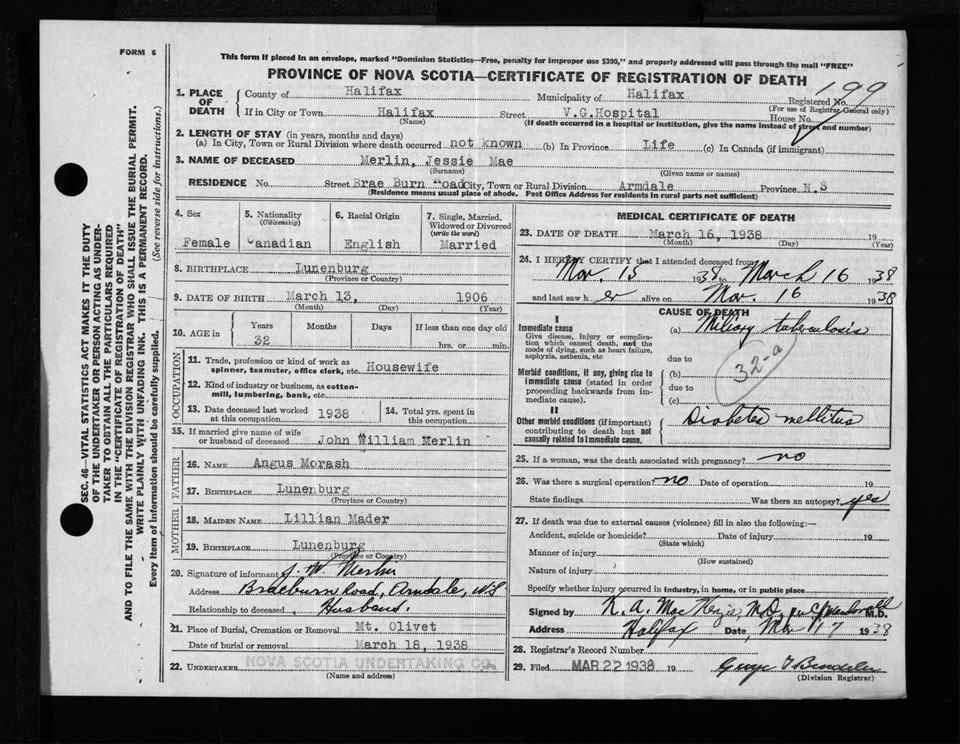 FORM 6
This form if placed in an envelope, marked "Dominion Statistics—Free, penalty for improper use $300," and properly addressed will pass through the mail "FREE"
PROVINCE OF NOVA SCOTIA—CERTIFICATE OF REGISTRATION OF DEATH
199
1. PLACE OF DEATH
County of Halifax Municipality of Halifax Registered No.
(For use of Registrar General only)
If in City or Town Halifax Street V.G.Hospital House No.
(Name) (If death occurred in a hospital or institution, give the name instead of street and number)
2. LENGTH OF STAY (in years, months and days)
(a) In City, Town or Rural Division where death occurred not known (b) In Province Life (c) In Canada (if immigrant)
3. NAME OF DECEASED Merlin, Jessie Mae
(Surname) (Given name or names)
RESIDENCE No. Street Brae Burn Road City, Town or Rural Division Armdale Province N.S
(Residence means usual place of abode. Post Office Address for residents in rural parts not sufficient)
4. Sex Female
5. Nationality (Citizenship) Canadian
6. Racial Origin English
7. Single, Married, Widowed or Divorced (write the word) Married
8. BIRTHPLACE Lunenburg
(Province or Country)
9. DATE OF BIRTH March 13, 1906
(Month) (Day) (Year)
10. AGE in Years Months Days If less than one day old
32 hrs. or min.
OCCUPATION
11. Trade, profession or kind of work as spinner, teamster, office clerk, etc. Housewife
12. Kind of industry or business, as cotton-mill, lumbering, bank, etc.
13. Date deceased last worked at this occupation 1938
14. Total yrs. spent in this occupation
15. If married give name of wife or husband of deceased John William Merlin
FATHER
16. NAME Angus Morash
17. BIRTHPLACE Lunenburg
(Province or Country)
MOTHER
18. MAIDEN NAME Lillian Mader
19. BIRTHPLACE Lunenburg
(Province or Country)
20. Signature of informant J. W. Merlin
Address Braeburn Road, Armdale, NS
Relationship to deceased Husband.
21. Place of Burial, Cremation or Removal Mt. Olivet
Date of burial or removal March 18, 1938
22. UNDERTAKER NOVA SCOTIA UNDERTAKING CO.
(Name and address)
MEDICAL CERTIFICATE OF DEATH
23. DATE OF DEATH March 16, 1938 19
(Month) (Day) (Year)
24. I HEREBY CERTIFY that I attended deceased from
Mar. 15 1938 to March 16 1938
and last saw h er alive on Mar. 16 1938
CAUSE OF DEATH
I
Immediate cause
Give disease, injury or complication which caused death, not the mode of dying, such as heart failure, asphyxia, asthenia, etc
(a) Miliary tuberculosis
due to
Morbid conditions, if any, giving rise to immediate cause (stated in order proceeding backwards from immediate cause).
(b)
due to
(c)
32-a
II
Other morbid conditions (if important) contributing to death but not causally related to immediate cause.
Diabetes mellitus
25. If a woman, was the death associated with pregnancy? no
26. Was there a surgical operation? no Date of operation 19
State findings Was there an autopsy? yes
27. If death was due to external causes (violence) fill in also the following:—
Accident, suicide or homicide? Date of injury 19
(State which)
Manner of injury
(How sustained)
Nature of injury
Specify whether injury occurred in Industry, in home, or in public place
Signed by K. A. MacKenzie, M.D. M.D.
Address Halifax Date, Mar 17 1938
28. Registrar's Record Number
29. Filed MAR 22 1938 19
(Division Registrar)
SEC. 46—VITAL STATISTICS ACT MAKES IT THE DUTY
OF THE UNDERTAKER OR PERSON ACTING AS UNDER-
TAKER TO OBTAIN ALL THE PARTICULARS REQUIRED
IN THE "CERTIFICATE OF REGISTRATION OF DEATH"
AND TO FILE THE SAME WITH THE DIVISION REGISTRAR WHO SHALL ISSUE THE BURIAL PERMIT.
WRITE PLAINLY WITH UNFADING INK. THIS IS A PERMANENT RECORD.
Every item of information should be carefully supplied. (See reverse side for instructions.)